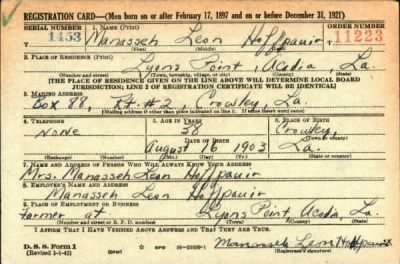 REGISTRATION CARD—(Men born on or after February 17, 1897 and on or before December 31, 1921)
SERIAL NUMBER 1. NAME (Print) ORDER NUMBER
1453 Manasseh Leon Hoffpauir 11223
(First) (Middle) (Last)
2. PLACE OF RESIDENCE (Print)
Lyons Point, Acadia La.
(Number and street) (Town, township, village, or city) (County) (State)
[THE PLACE OF RESIDENCE GIVEN ON THE LINE ABOVE WILL DETERMINE LOCAL BOARD
JURISDICTION; LINE 2 OF REGISTRATION CERTIFICATE WILL BE IDENTICAL]
3. MAILING ADDRESS
Box 88, Rt #2, Crowley, La.
[Mailing address if other than place indicated on line 2. If same insert word same]
4. TELEPHONE 5. AGE IN YEARS 6. PLACE OF BIRTH
None 38 Crowley,
DATE OF BIRTH (Town or county)
August 16 1903 La.
(Exchange) (Number) (Mo.) (Day) (Yr.) (State or country)
7. NAME AND ADDRESS OF PERSON WHO WILL ALWAYS KNOW YOUR ADDRESS
Mrs. Manasseh Leon Hoffpauir
8. EMPLOYER'S NAME AND ADDRESS
Manasseh Leon Hoffpauir
9. PLACE OF EMPLOYMENT OR BUSINESS
Farmer at Lyons Point Acadia, La.
(Number and street or R. F. D. number) (Town) (County) (State)
I AFFIRM THAT I HAVE VERIFIED ABOVE ANSWERS AND THAT THEY ARE TRUE.
D. S. S. Form 1
(Revised 1-1-42) (over) Manasseh Leon Hoffpauir
(Registrant's signature)